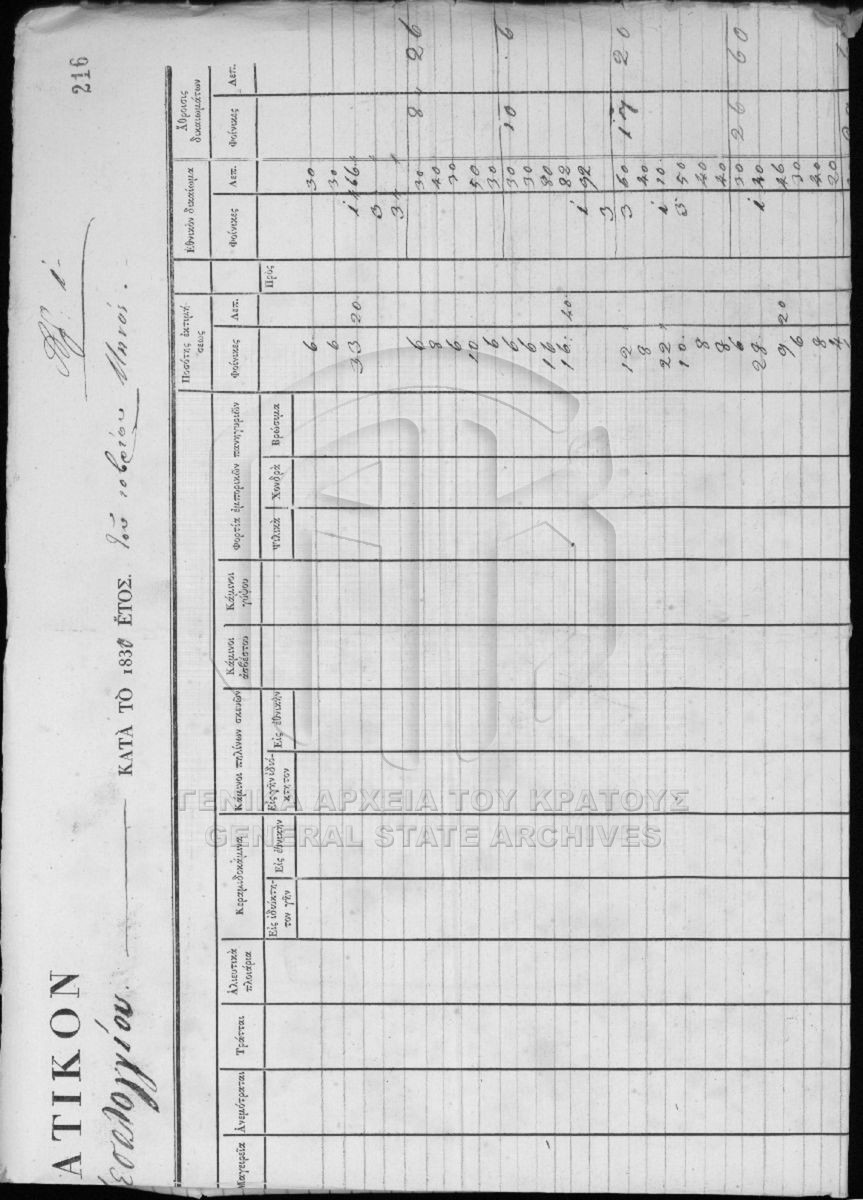 216
ΑΤΙΚΟΝ
ΚΑΤΑ ΤΟ 1830 ΕΤΟΣ.
Μηνός.
Μαγειρεία
Ἀνεμότραται
Τράτται
Ἁλιευτικὰ πλοιάρια
Κεραμιδοκάμινα
Εἰς ἰδιόκτητον γῆν
Εἰς ἐθνικὴν
Κάμινοι πηλίνων σκευῶν
Εἰς γῆν ἰδιόκτητον
Εἰς ἐθνικὴν
Κάμινοι ἀσβέστου
Κάμινοι γύψου
Φορτία ἐμπορικῶν πανηγυριῶν
Ψιλικὰ
Χονδρὰ
Βρώσιμα
Ποσότης ἐκτιμήσεως
Φοίνικες
Λεπ.
Πρὸς
Ἐθνικὸν δικαίωμα
Φοίνικες
Λεπ.
Ἄθροισις δικαιωμάτων
Φοίνικες
Λεπ.
6 30
6 30
33 20 1 66
3
3
6 30 8 26
8 40
6 30
10 50
6 30
6 30 10 6
6 30
16 80
16 40 82
1 92
3
12 3 60 17 20
8 40
22 1 10
10 50
8 40
8 40
6 30 26 60
28 1 40
9 20 46
6 30
8 40
4 20
ΓΕΝΙΚΑ ΑΡΧΕΙΑ ΤΟΥ ΚΡΑΤΟΥΣ
GENERAL STATE ARCHIVES